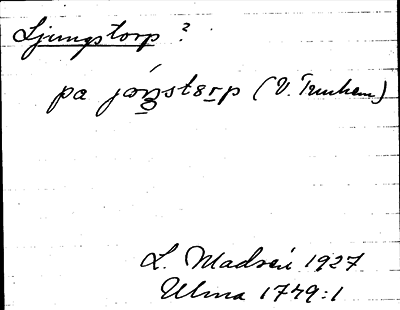 Ljungstorp ?
pa jǻn̥stərp (V. Tunhem)
L. Madsén 1927
Ulma 1779:1